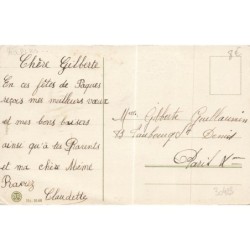 Chère Gilberte
En ces fêtes de Pâques
reçois mes meilleurs vœux
et mes bons baisers
ainsi qu'à tes Parents
et ma chère Mème
Claudette
Gilberte Guillaumin
13 Faubourg St Denis
Paris
8€